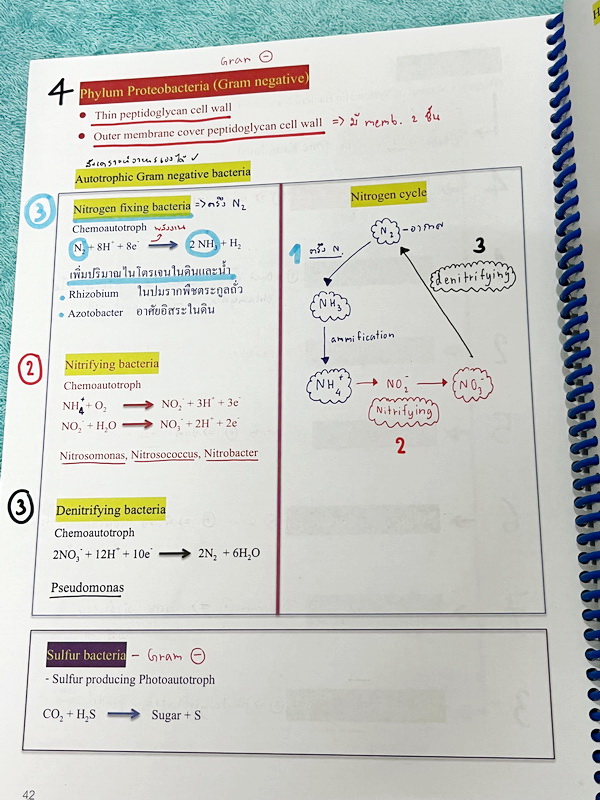 Gram ⊖
4 Phylum Proteobacteria (Gram negative)
• Thin peptidoglycan cell wall
• Outer membrane cover peptidoglycan cell wall => มี memb. 2 ชั้น
Autotrophic Gram negative bacteria
3 Nitrogen fixing bacteria => ตรึง N₂
Chemoautotroph พลังงาน
N₂ + 8H⁺ + 8e⁻ → 2 NH₃ + H₂
เพิ่มปริมาณไนโตรเจนในดินและน้ำ
• Rhizobium ในปมรากพืชตระกูลถั่ว
• Azotobacter อาศัยอิสระในดิน
2 Nitrifying bacteria
Chemoautotroph
NH₄⁺ + O₂ → NO₂⁻ + 3H⁺ + 3e⁻
NO₂⁻ + H₂O → NO₃⁻ + 2H⁺ + 2e⁻
Nitrosomonas, Nitrosococcus, Nitrobacter
3 Denitrifying bacteria
Chemoautotroph
2NO₃⁻ + 12H⁺ + 10e⁻ → 2N₂ + 6H₂O
Pseudomonas
Nitrogen cycle
N₂ - อากาศ
1 ตรึง N.
3
denitrifying
NH₃
ammification
NH₄⁺ → NO₂⁻ → NO₃⁻
Nitrifying
2
Sulfur bacteria - Gram ⊖
- Sulfur producing Photoautotroph
CO₂ + H₂S → Sugar + S
42